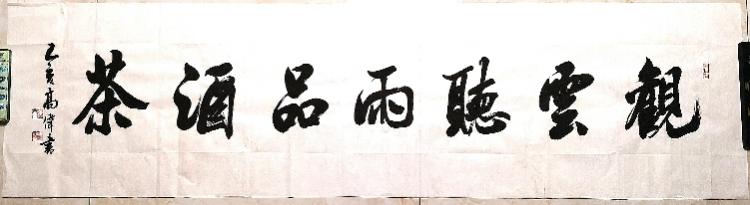 觀雲聽雨品酒茶
己亥高偉書